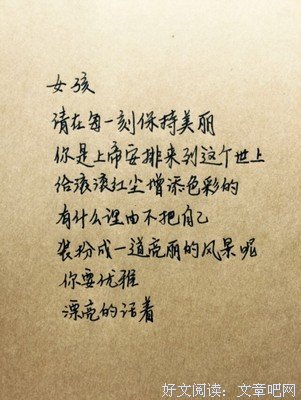 女孩
请在每一刻保持美丽
你是上帝安排来到这个世上
给滚滚红尘增添色彩的
有什么理由不把自己
装扮成一道亮丽的风景呢
你要优雅
漂亮的活着
好文阅读：文章吧网